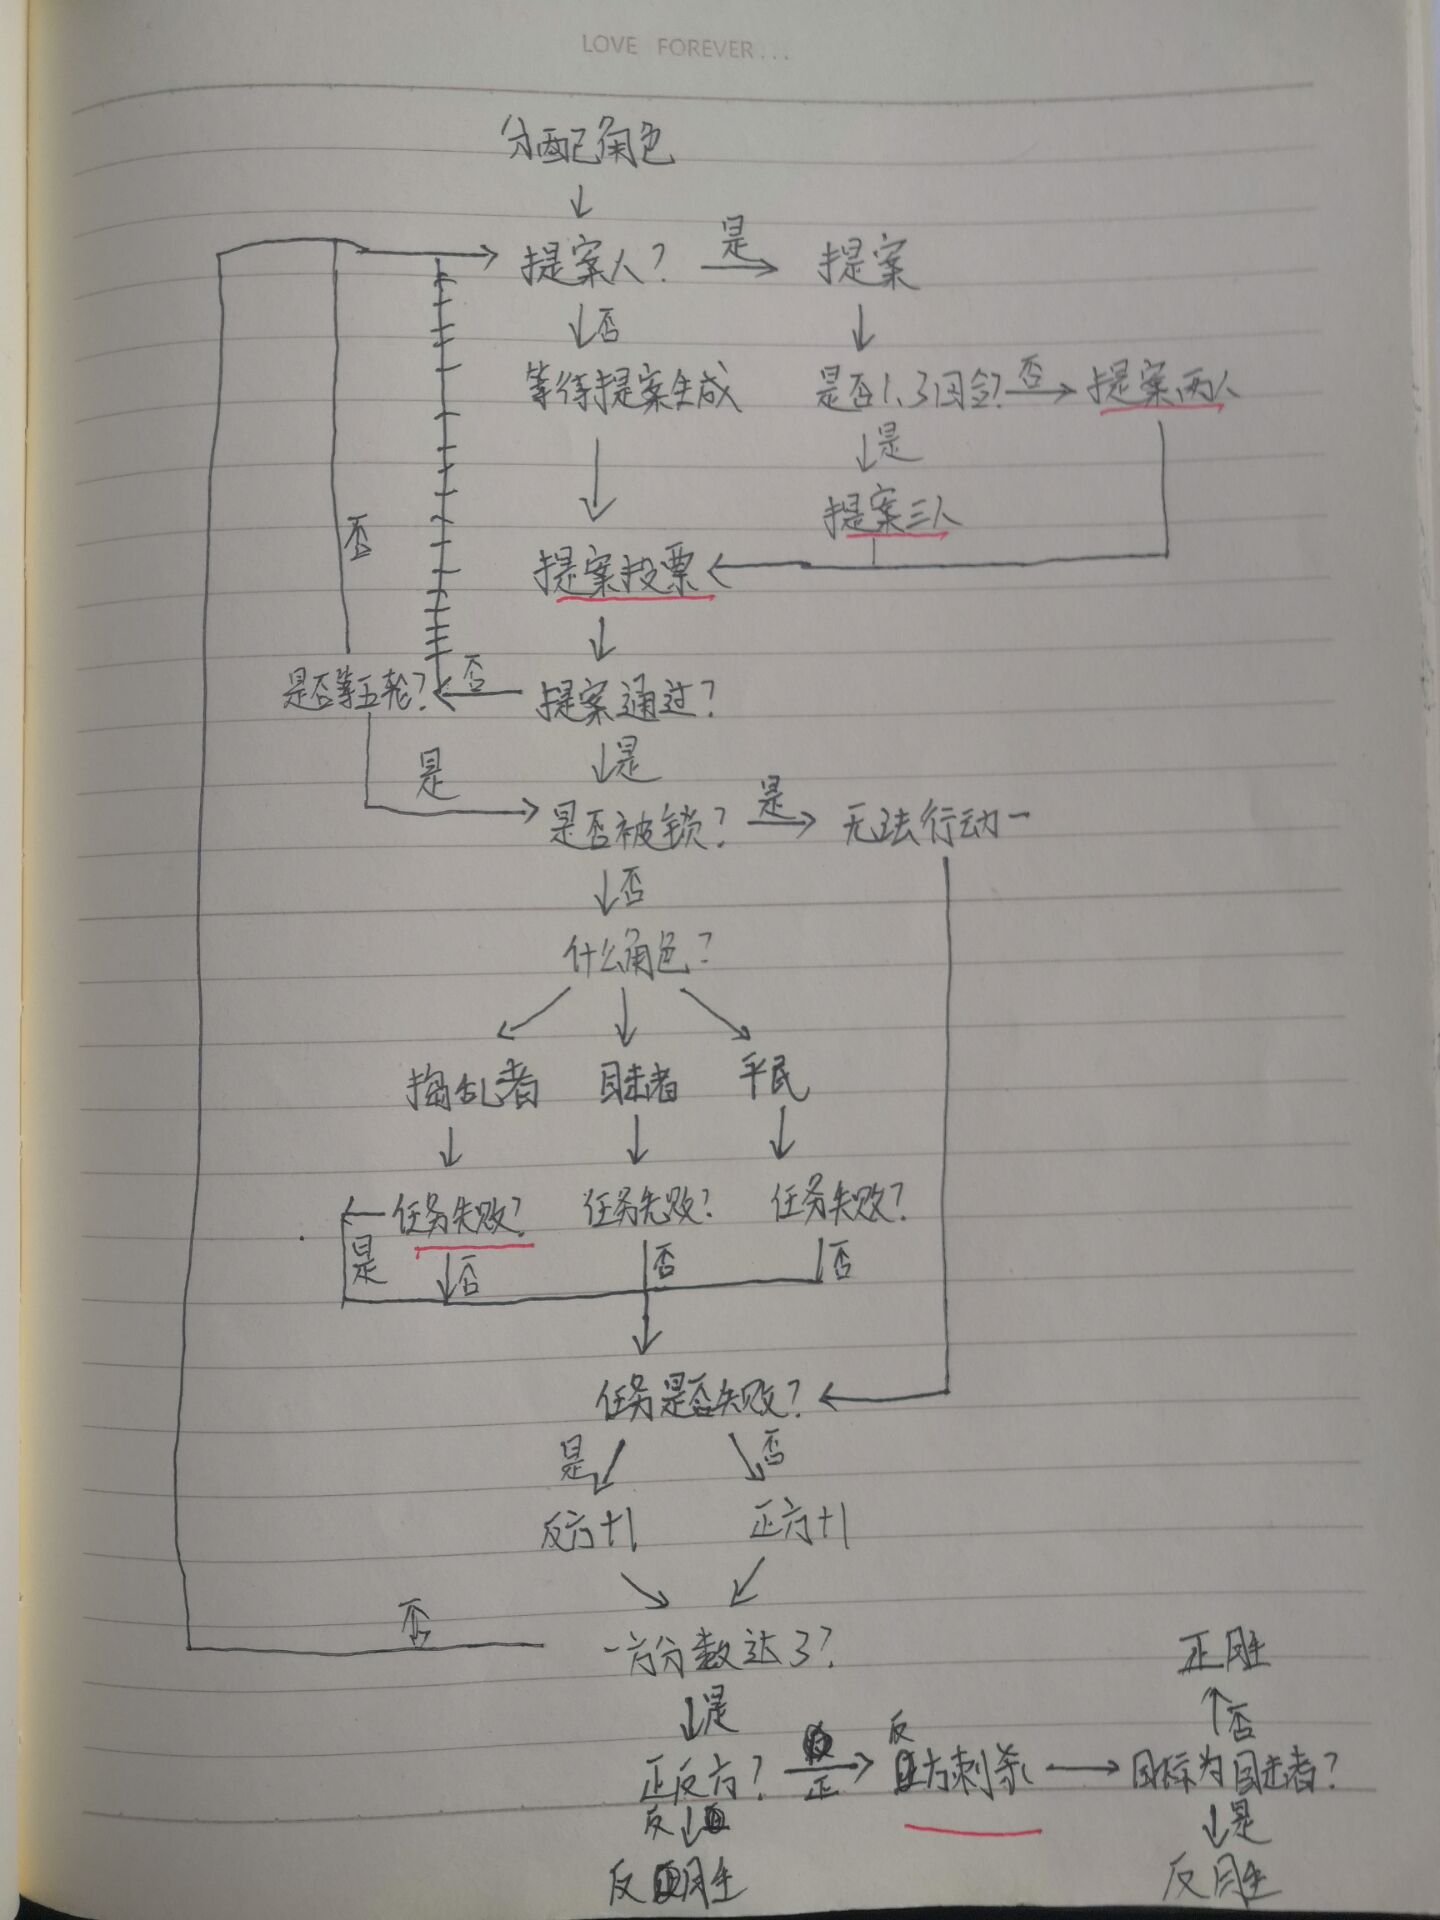 LOVE FOREVER...
分配角色
提案人? 是 提案
否
等待提案生成 是否1、3回合? 否 提案两人
是
提案三人
否
提案投票
是否第五轮? 否 提案通过?
是 是
是否被锁? 是 无法行动
否
什么角色?
捣乱者 目击者 平民
任务失败? 任务失败? 任务失败?
是 否 否 否
任务是否失败?
是 否
反方+1 正方+1
否
一方分数达3? 正胜
是 否
正反方? 正 反方刺杀 目标为目击者?
反 是
反胜 反胜